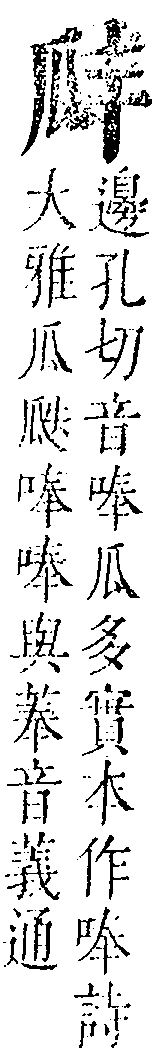 邊孔切音唪瓜多實本作唪詩
大雅瓜瓞唪唪與菶音義通